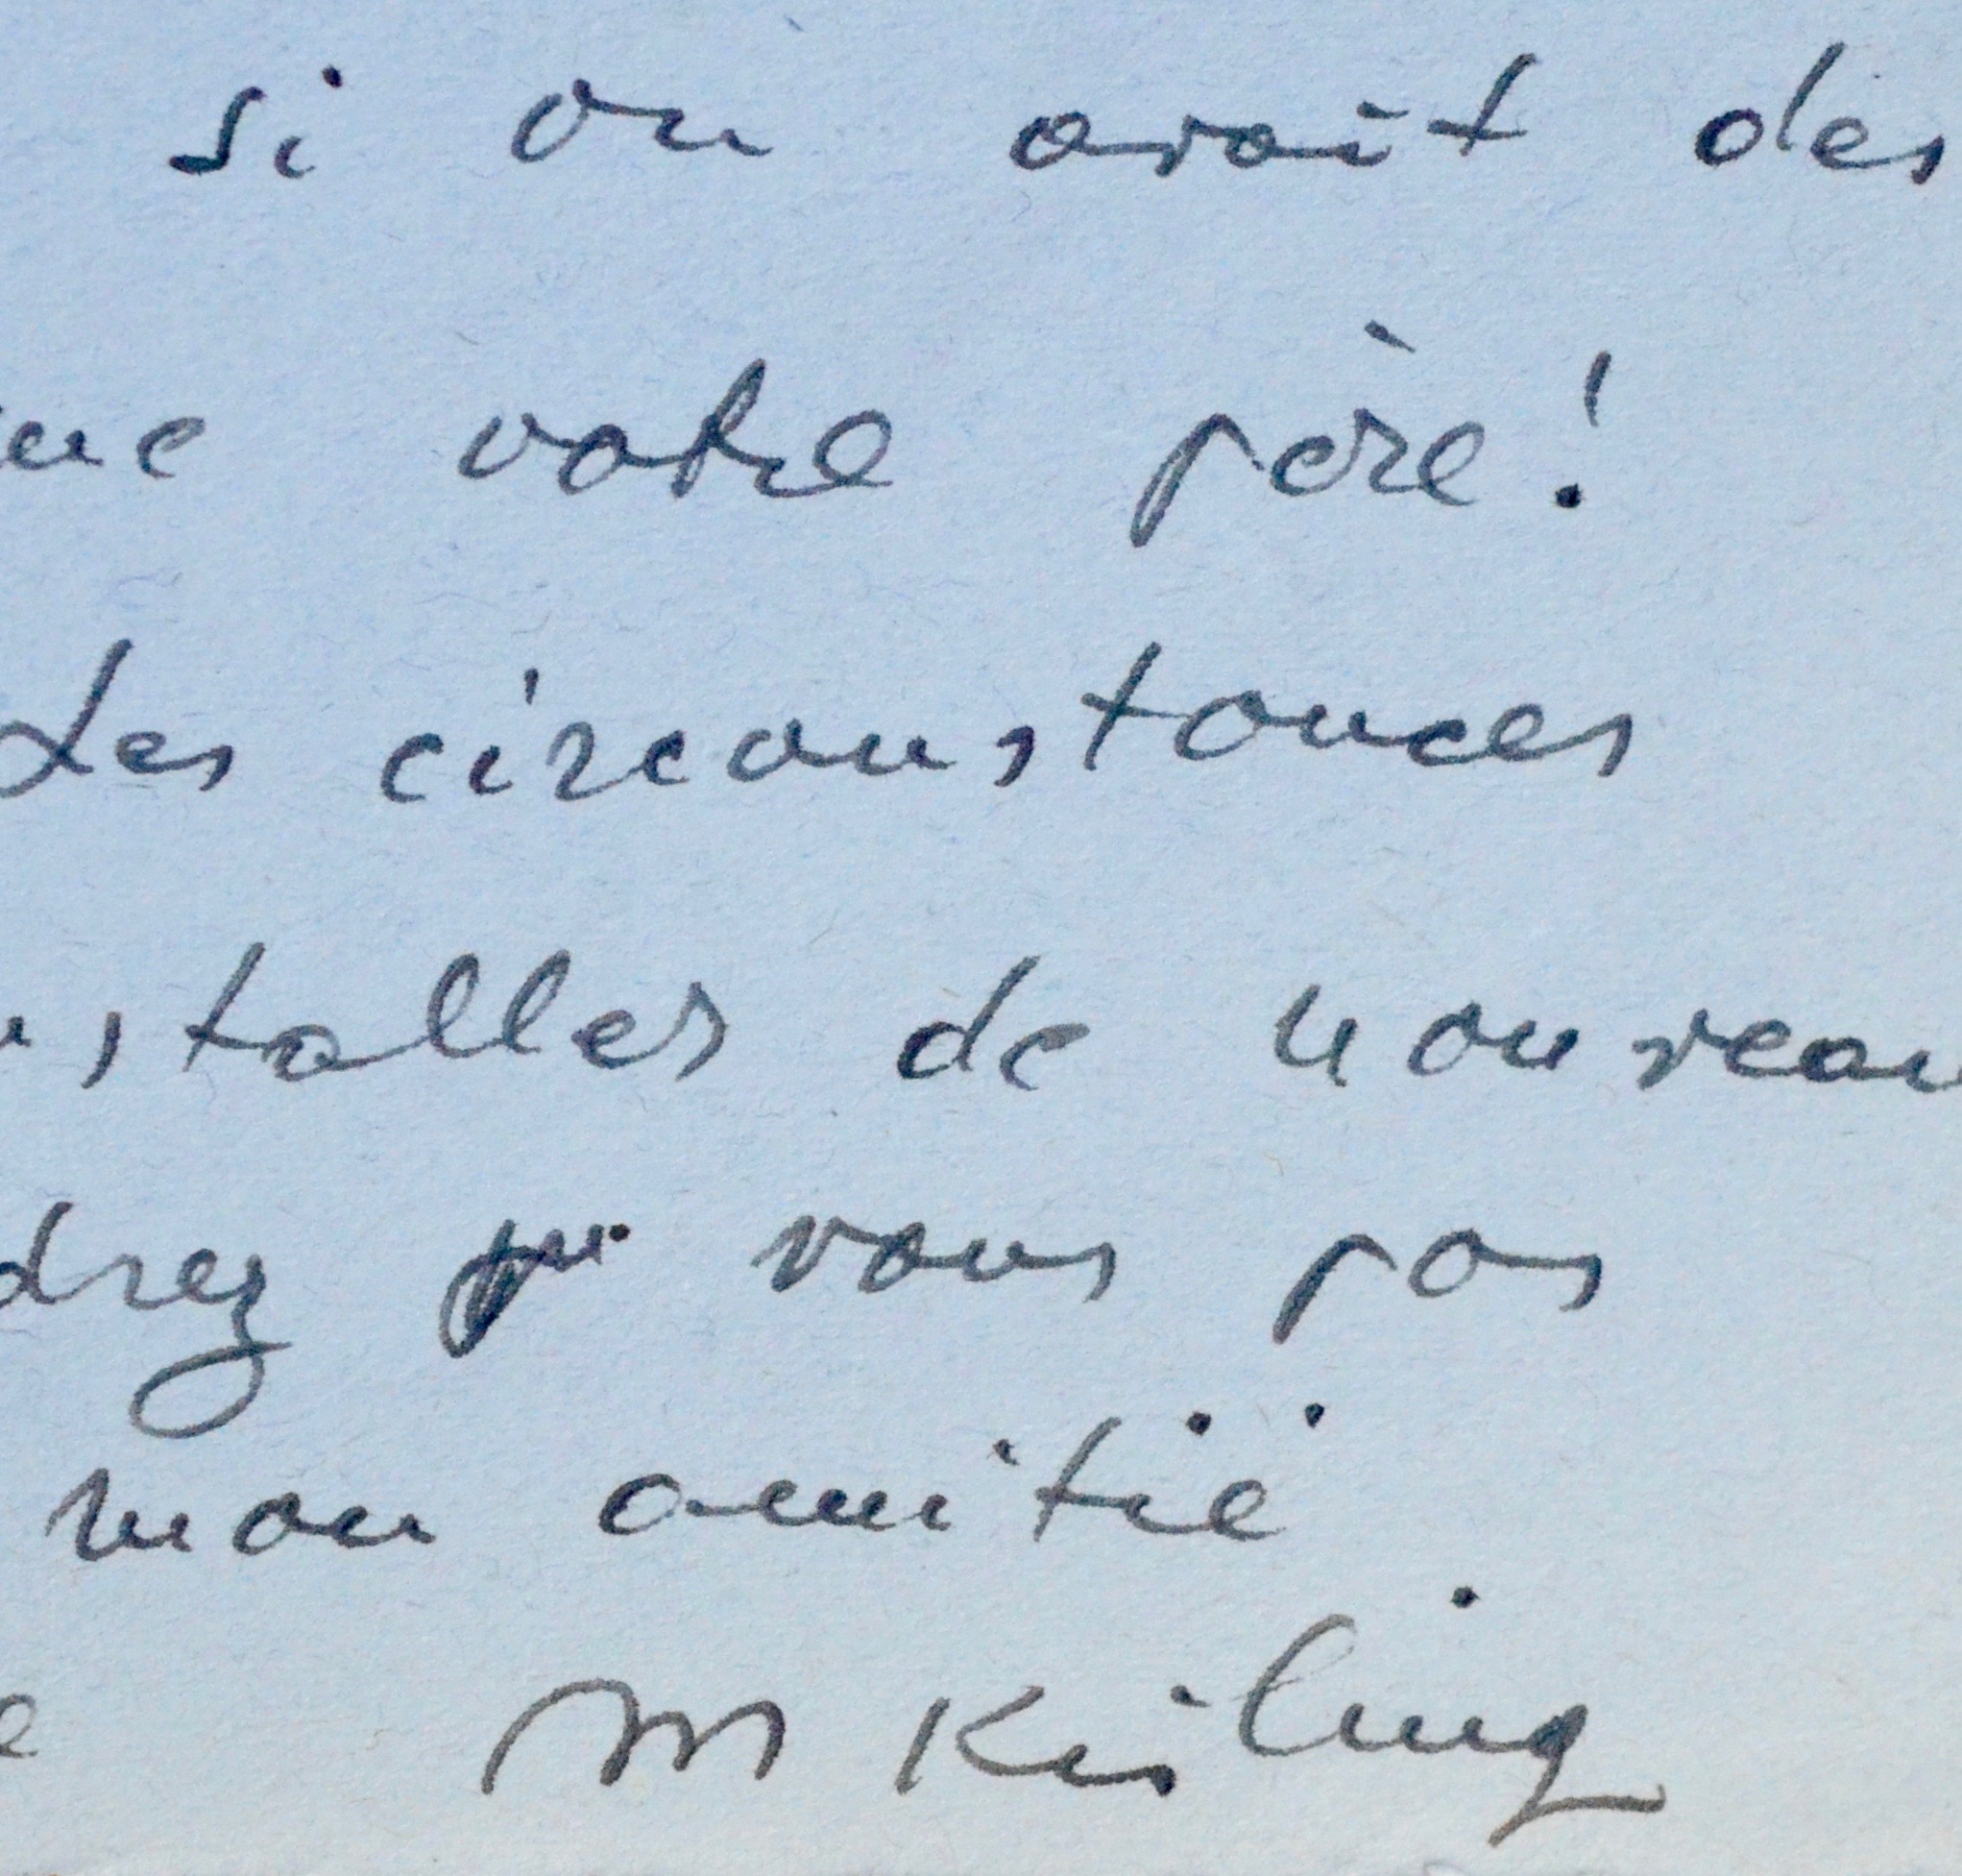 si on avait des
me votre père!
Les circonstances
nstaller de nouveau
drez vous pas
mon amitié
e M Kisling